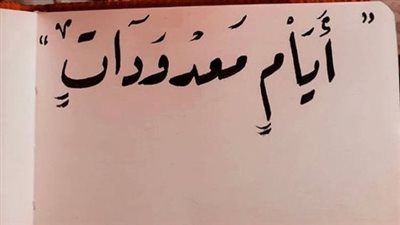 "أَيَامٍ مَعْدُودَاتٍ"